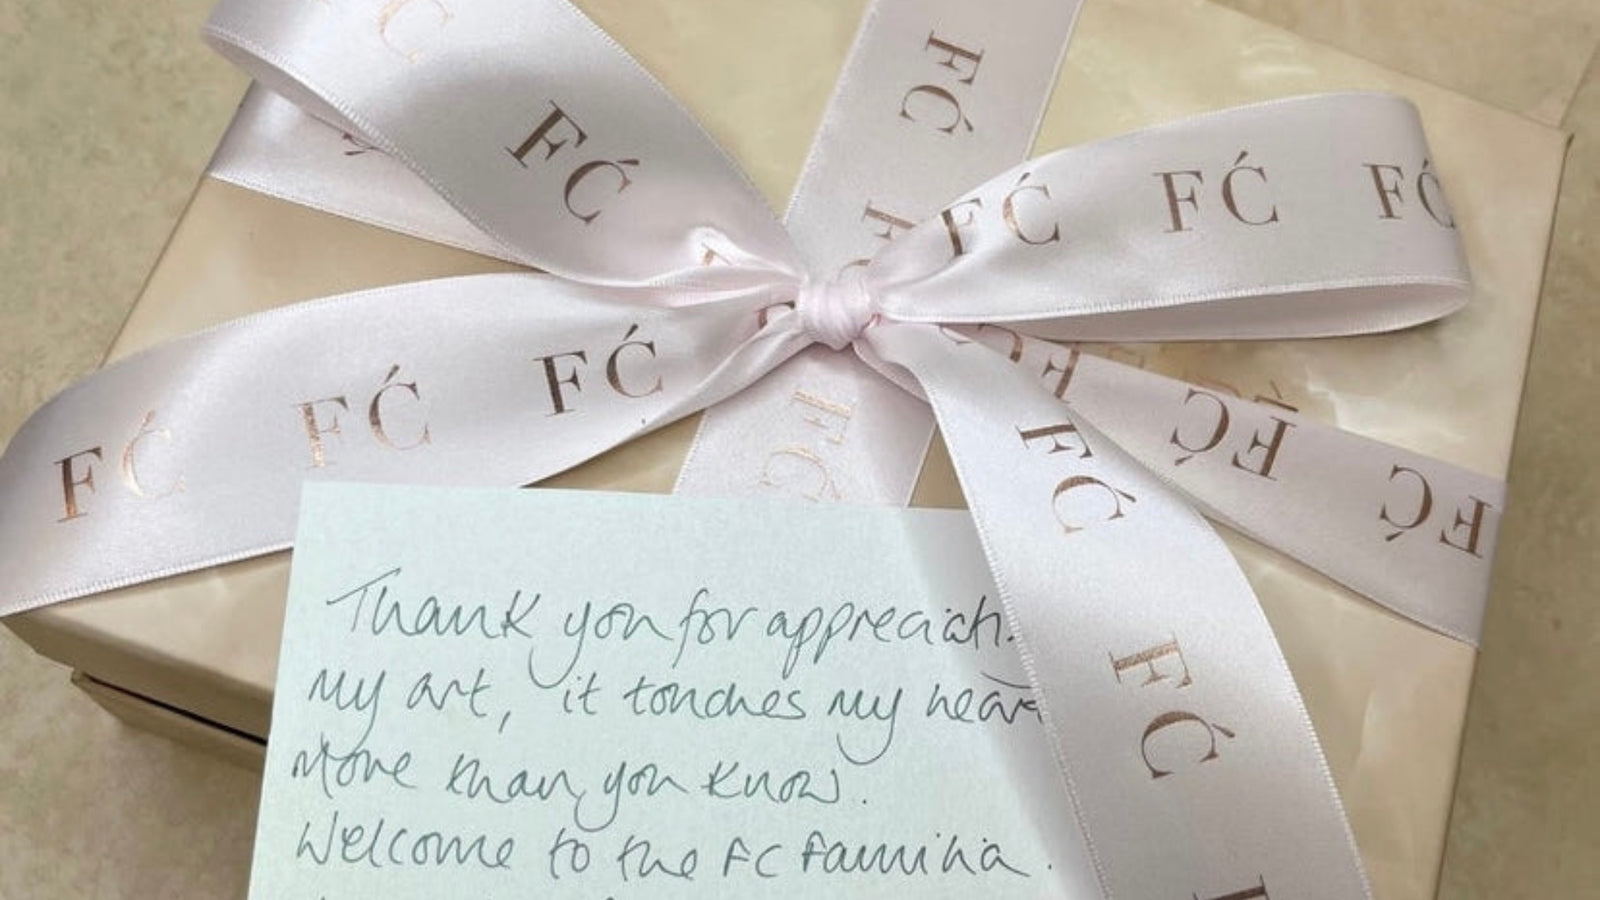 FĆ
FĆ
FĆ FĆ FĆ
FĆ FĆ FĆ
FĆ
FĆ
FĆ
FĆ
FĆ
Thank you for
my art, it touches my heart
more than you know.
Welcome to the FC familia.